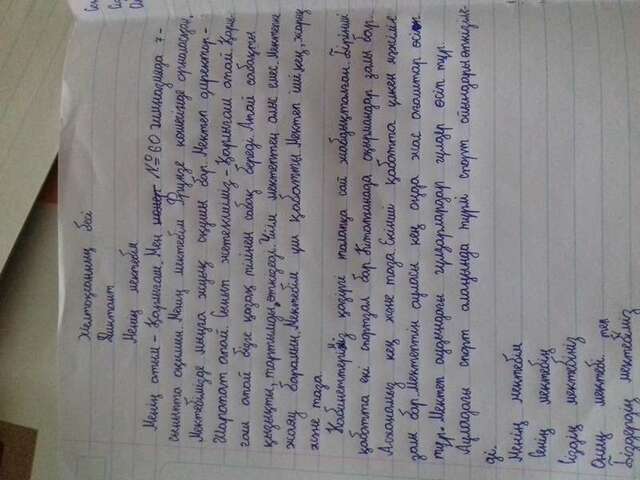 Желтоқсанның бесі
Диктант
Менің мектебім
Менің атым - Қарлығаш. Мен №60 гимназияда 7-
сыныпта оқимын. Менің мектебім Фрунзе көшесінде орналасқан.
Мектебімізде мыңға жуық оқушы бар. Мектеп директор-
Шарапат апай. Сынып жетекшіміз - Қарлығаш апай. Қарлы-
ғаш апай бізге қазақ тілінен сабақ береді. Апай сабақты
қызықты, тартымды өткізеді. Үйім мектептен алыс емес. Мектепке
жаяу барамын. Мектебім үш қабатты. Мектеп іші кең, жарық
және таза.
Кабинеттеріміз қазіргі талапқа сай жабдықталған. Бірінші
қабатта екі спортзал бар. Кітапханада оқырмандар залы бар.
Асханамыз кең және таза. Екінші қабатта үлкен мәжіліс
залы бар. Мектептің ауласы кең онда жас ағаштар өсіп
тұр. Мектеп алдындағы гүлзарлардар гүлдер өсіп тұр.
Ауладағы спорт алаңында түрлі спорт ойындары өткізіле-
ді.
Менің мектебім
Сенің мектебің
Сіздің мектебіңіз
Оның мектебі
Біздердің мектебіміз